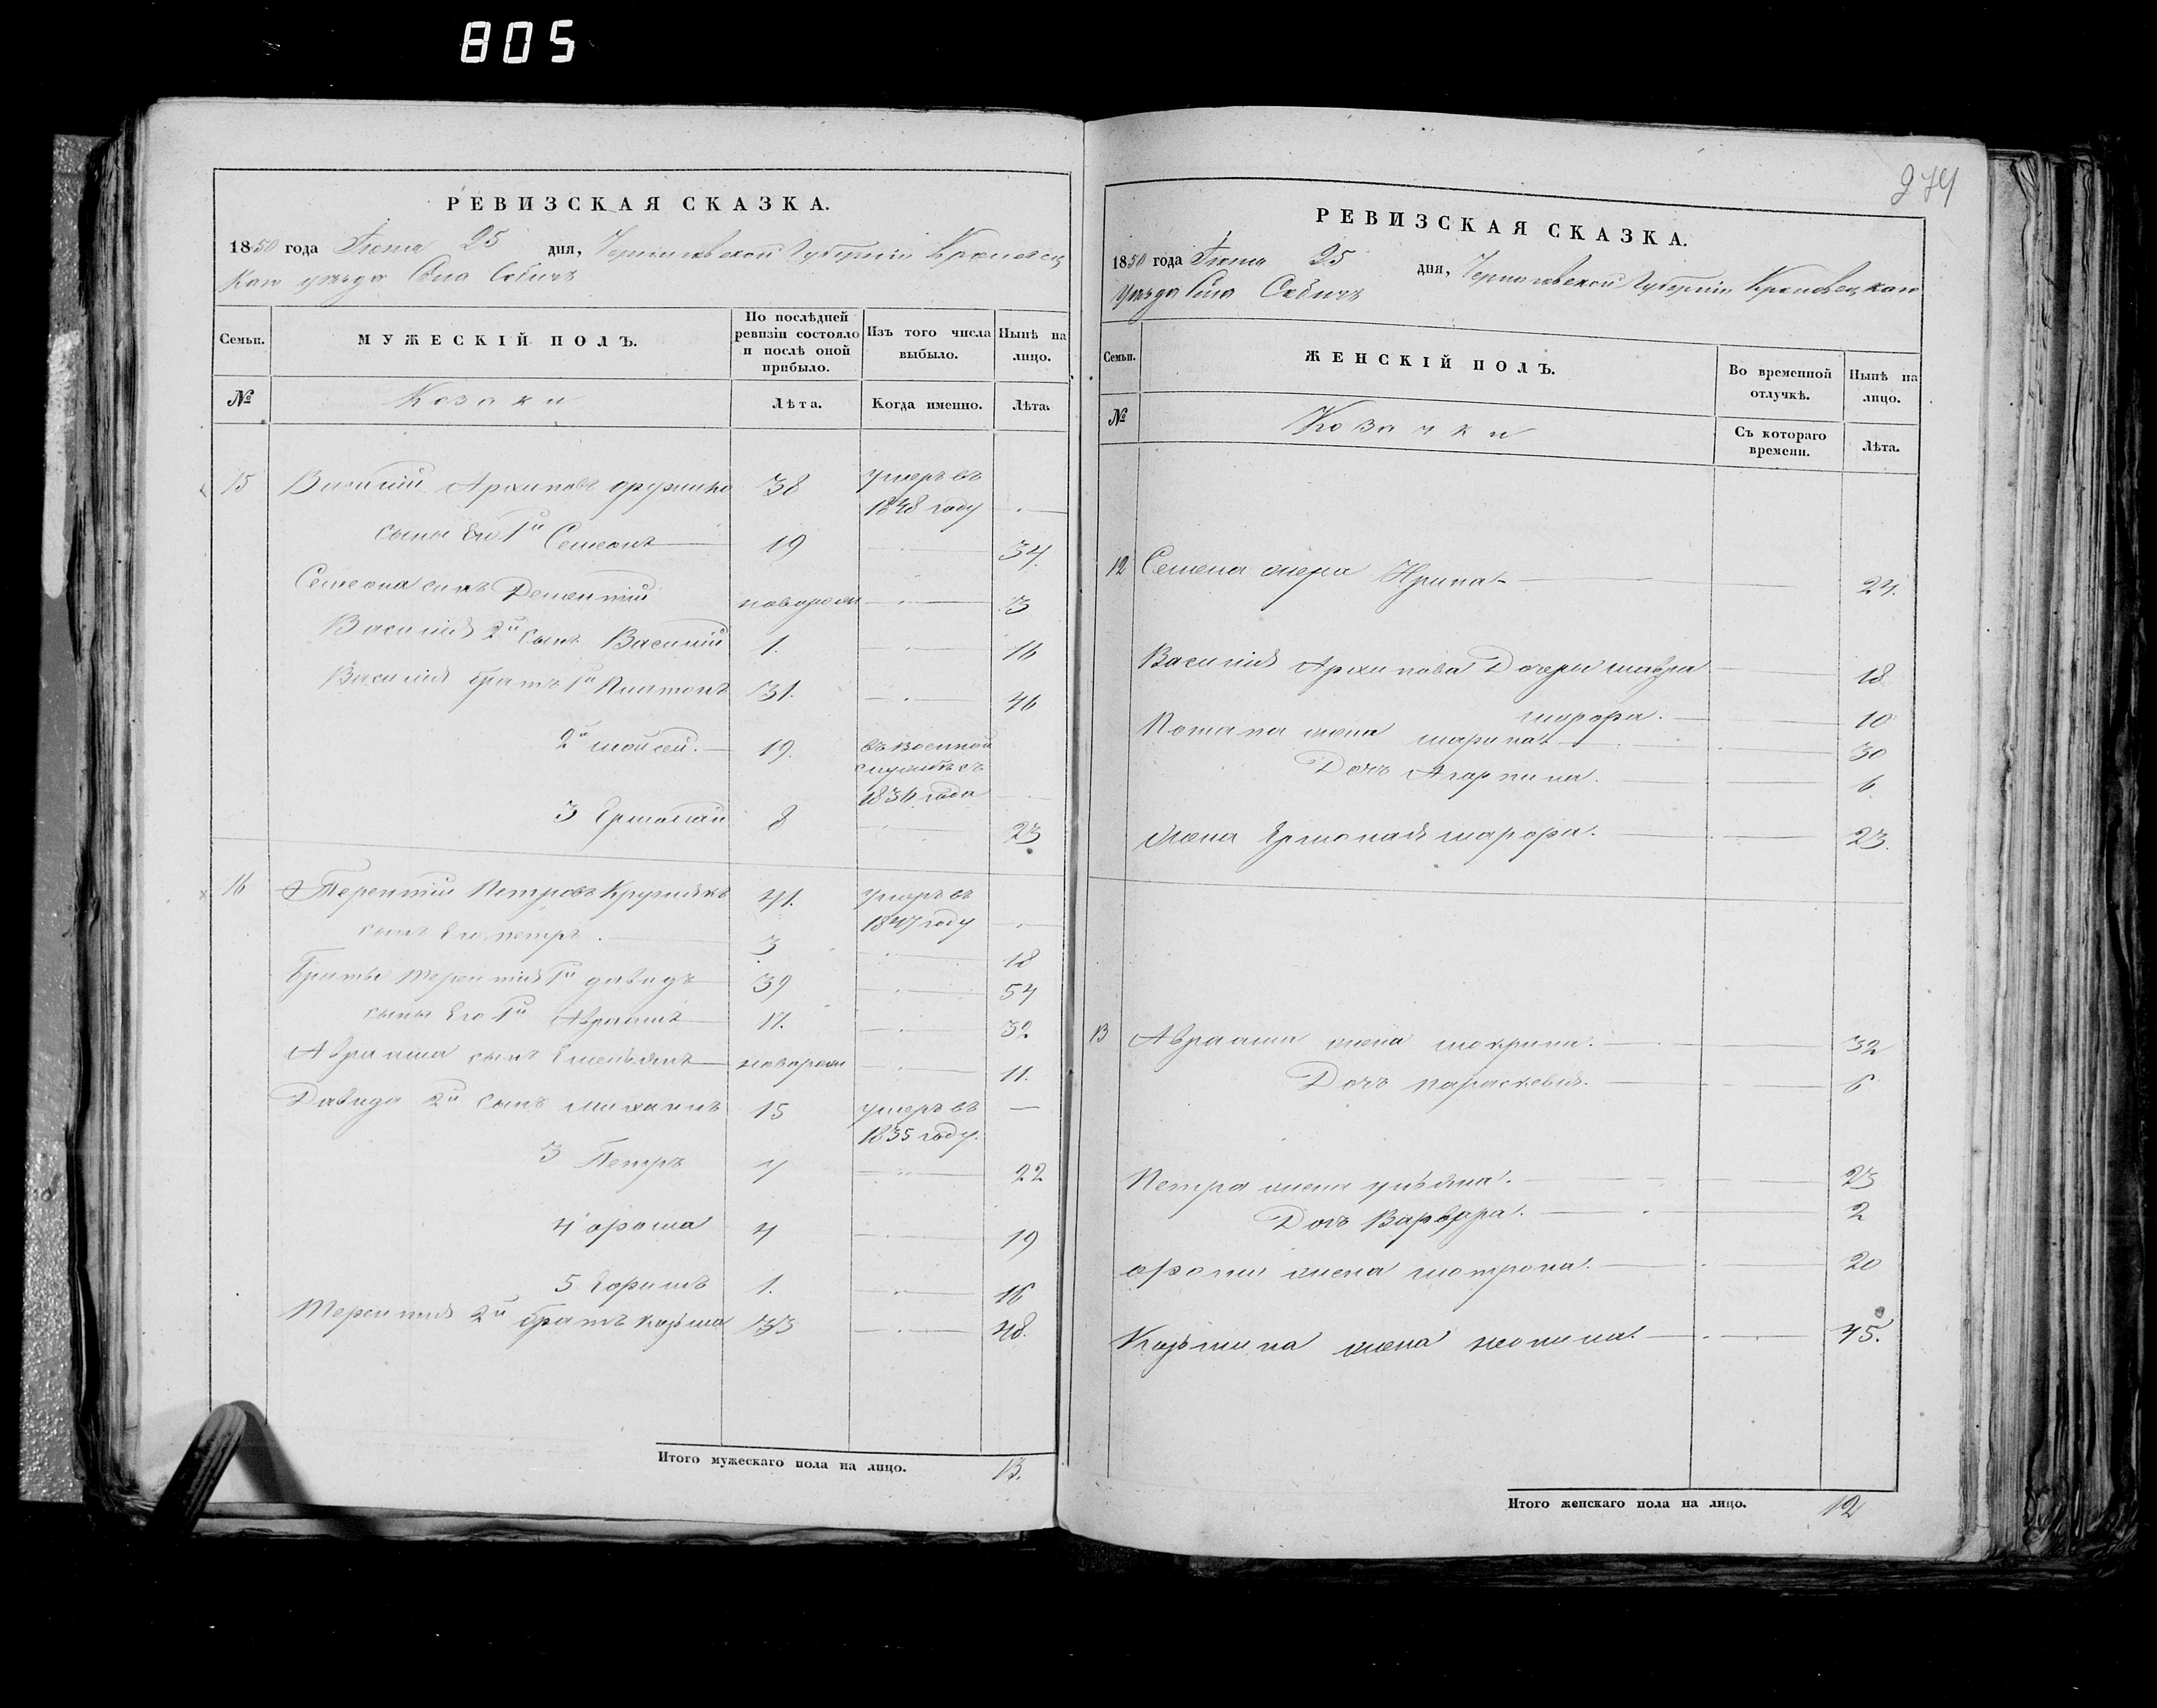 805
РЕВИЗСКАЯ СКАЗКА.
1850 года Июня 25 дня, Черниговской Губернiи Кролевец
каго уѣзда Села Собичъ
Семьи.
МУЖЕСКIЙ ПОЛЪ.
По послѣдней ревизiи состояло и послѣ оной прибыло.
Изъ того числа выбыло.
Нынѣ на лицо.
№
Козаки
Лѣта.
Когда именно.
Лѣта.
15 Василiй Архиповъ 38 умеръ въ
1848 году
сыны Его 1й Семенъ 19 34.
Семена сынъ Дементiй новорожд 3
Василiя 2й сынъ Василiй 1. 16
Василiя братъ 1й Платонъ 31. 46
2й Мойсей. 19. въ военной
службѣ съ
1836 года
3 Ермолай 8 23
16 Терентiй Петровъ Кругликъ 41. умеръ въ
1847 году
сынъ Его Петръ. 3 18
Браты Терентiя 1й Давидъ 39 54
сыны Его 1й Авраамъ 17. 32
Авраама сынъ Емельянъ новорожд 11.
Давида 2й сынъ Михаилъ 15 умеръ въ
1835 году.
3 Петръ 7 22
4 Фрома 4 19
5 Ефимъ 1. 16
Терентiя 2й братъ Козьма 33 48.
Итого мужескаго пола на лицо. 13.
274
РЕВИЗСКАЯ СКАЗКА.
1850 года Июня 25 дня, Черниговской Губернiи Кролевецкаго
Уѣзда Села Собичъ
Семьи.
ЖЕНСКIЙ ПОЛЪ.
Во временной отлучкѣ.
Нынѣ на лицо.
№
Козачки
Съ котораго времени.
Лѣта.
12 Семена жена Ирина 24.
Василiя Архипова Дочери Мавра 18
Марфа. 10
жена Марина 30
Дочь Агарпина. 6
Жена Ермолая Марфа. 23.
13 Авраама жена Мокрина. 32
Дочь Параскевiя. 6
Петра жена Ульяна. 23
Дочь Варвара. 2
жена Мотрона. 20
Козьмина жена 45.
Итого женскаго пола на лицо. 12